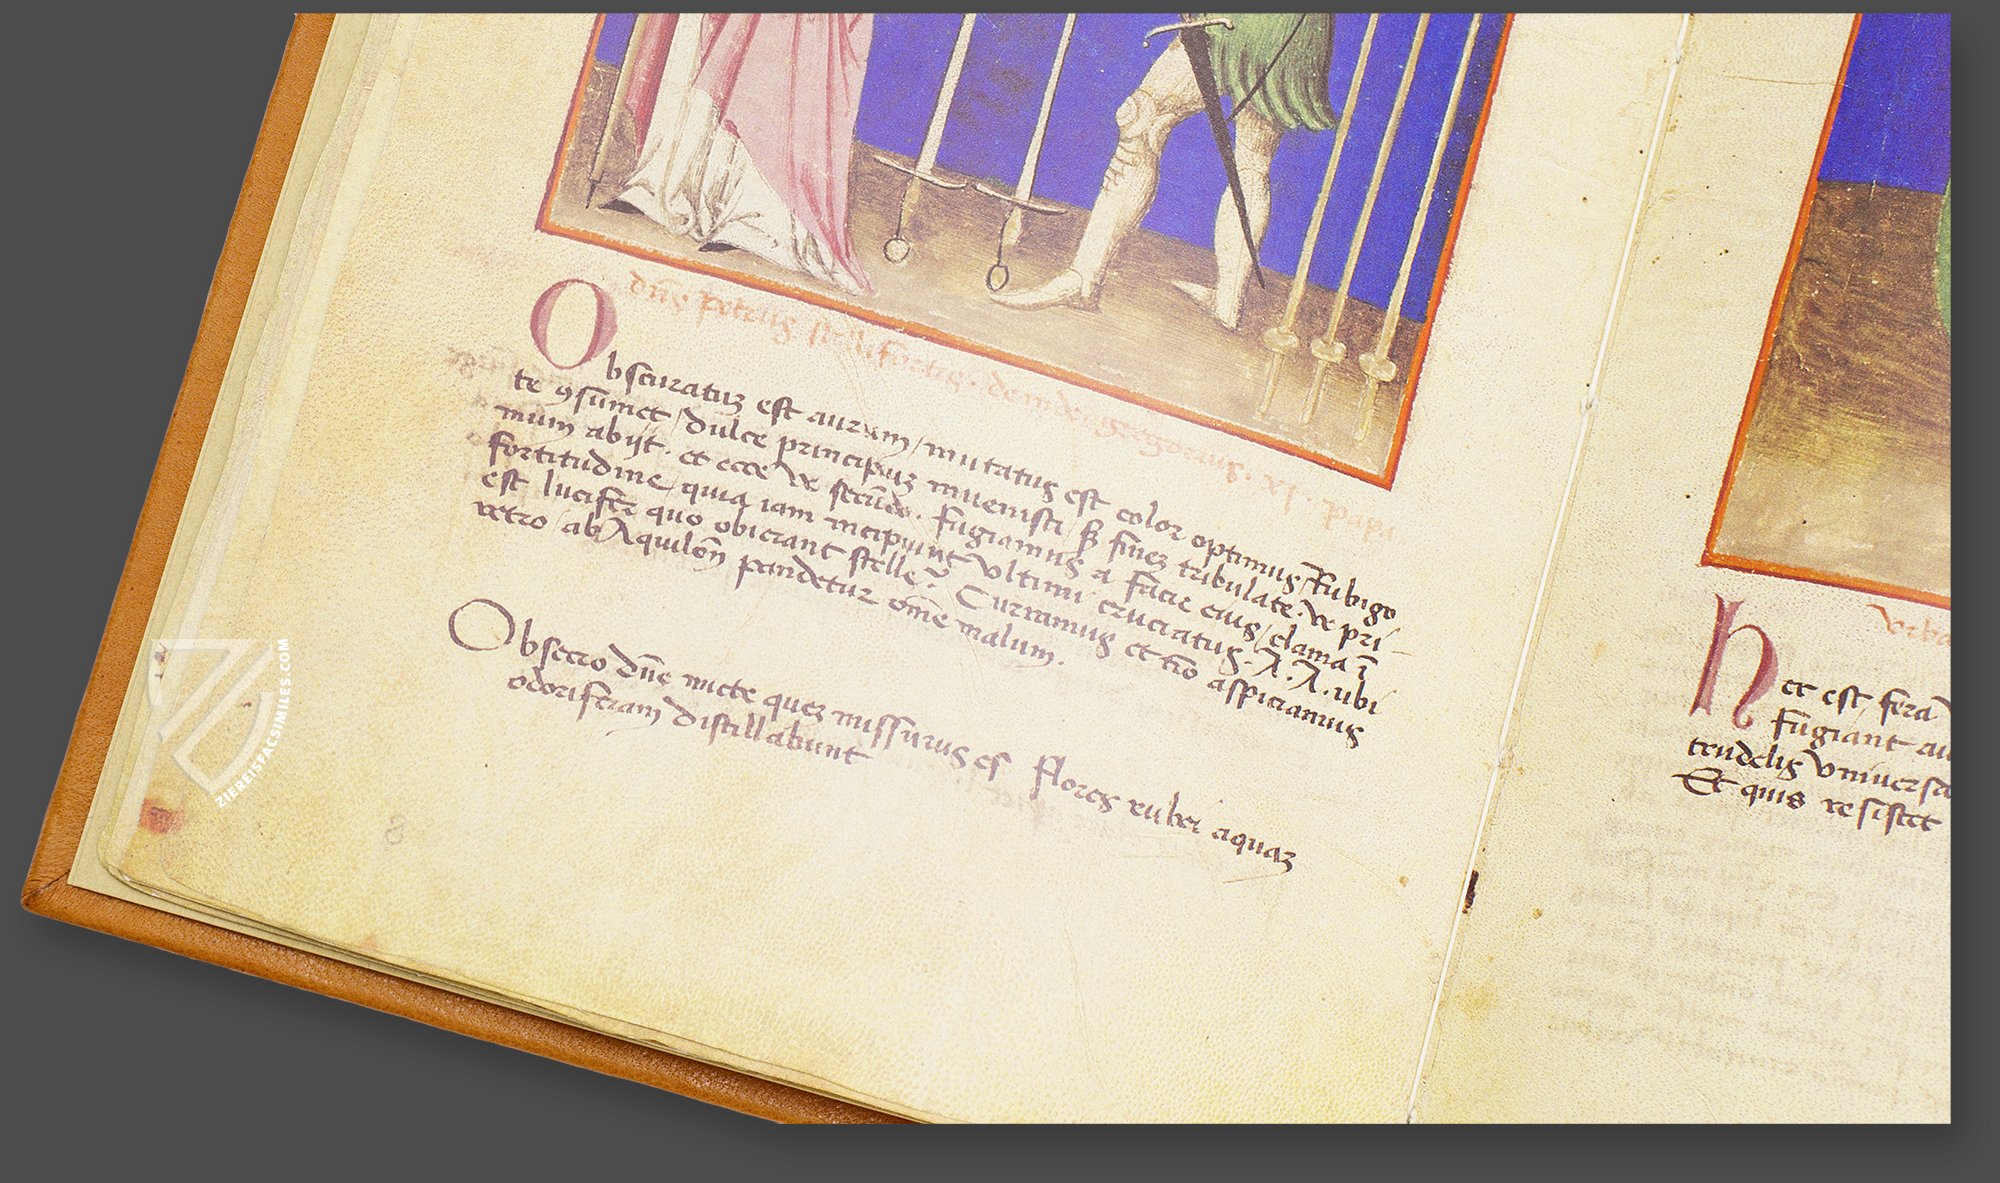 dn̄s petrus stell. fortis. deinde. gregorius. xj. papa
Obscuratuꝫ est aurum / mutatus est color optimus / Rubigo
te ꝯsumet / dulce principiuꝫ inuenisti / sꝫ fineꝫ tribulate. ve pri-
mum abijt. et ecce ve secūdo. fugiamus a facie eius / clama ī
fortitudine / quia iam incipiunt vltimi cruciatus. A. A. ubi
est lucifer quo obierant stelle? Curramus et nō aspiciamus
retro / ab Aquilōn pandetur om̄e malum.
Obsecro dn̄e mitte queꝫ missurus es flores rubei aquaꝫ
odoriferam distillabunt
8
Vrba
hec est fera
fugiant au
crudelis vniuersa
Et quis resistet
ZIEREISFACSIMILES.COM